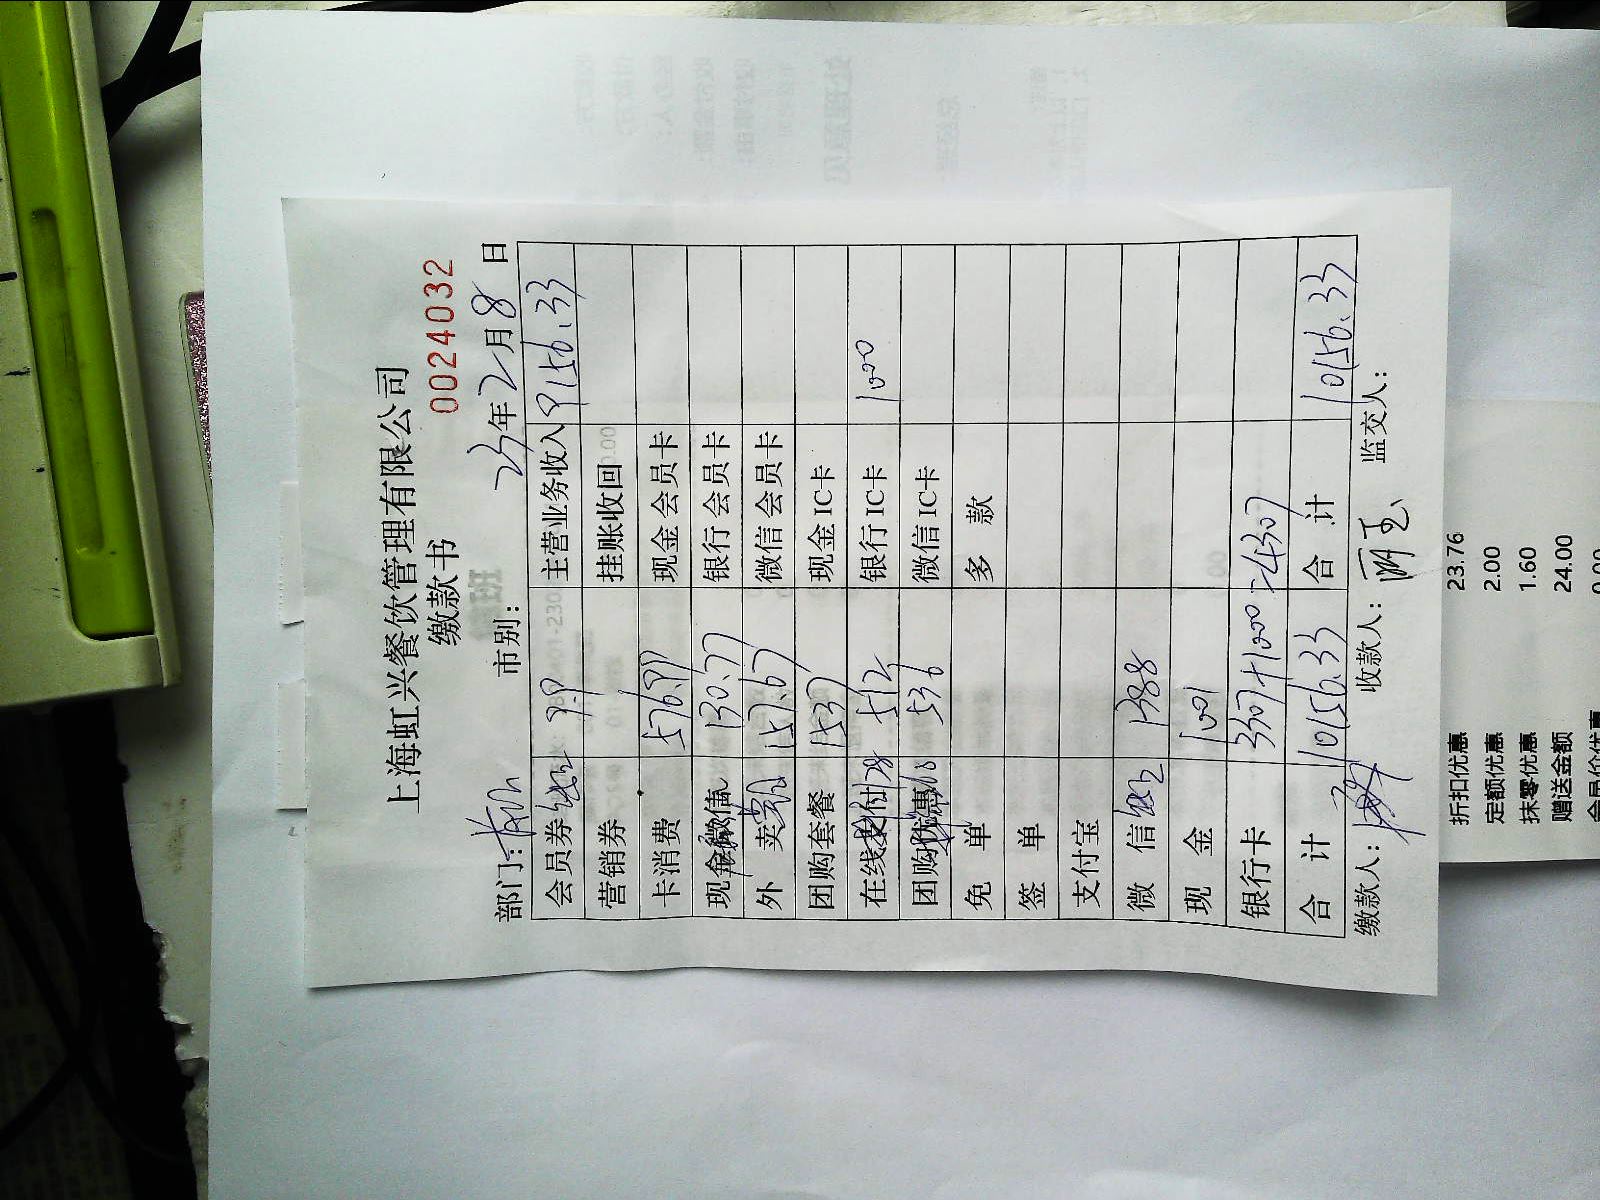 上海虹兴餐饮管理有限公司
缴款书
0024032
部门: 市别: 23年2月8日
会员券 9.9 主营业务收入 9156.33
营销券 挂账收回
卡消费 576.99 现金会员卡
现金微信 130.77 银行会员卡
外 卖 157.67 微信会员卡
团购套餐 1537 现金IC卡
在线支付 28 512 银行IC卡 1000
团购优惠 536 微信IC卡
免 单 多 款
签 单
支付宝
微 信 1388
现 金 1001
银行卡 3307+1000=4307
合 计 10156.33 合 计 10156.33
缴款人: 收款人: 监交人:
折扣优惠 23.76
定额优惠 2.00
抹零优惠 1.60
赠送金额 24.00
会员价优惠 0.00